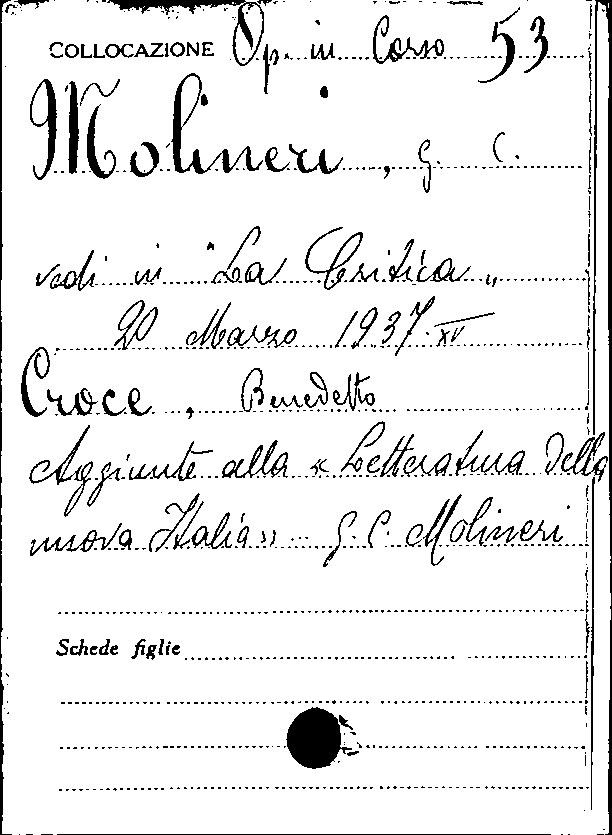 COLLOCAZIONE Op. in Corso 53
Molineri, G. C.
vedi in "La Critica„
20 Marzo 1937-XV
Croce, Benedetto
Aggiunte alla « Letteratura della
nuova Italia» - G. C. Molineri
Schede figlie